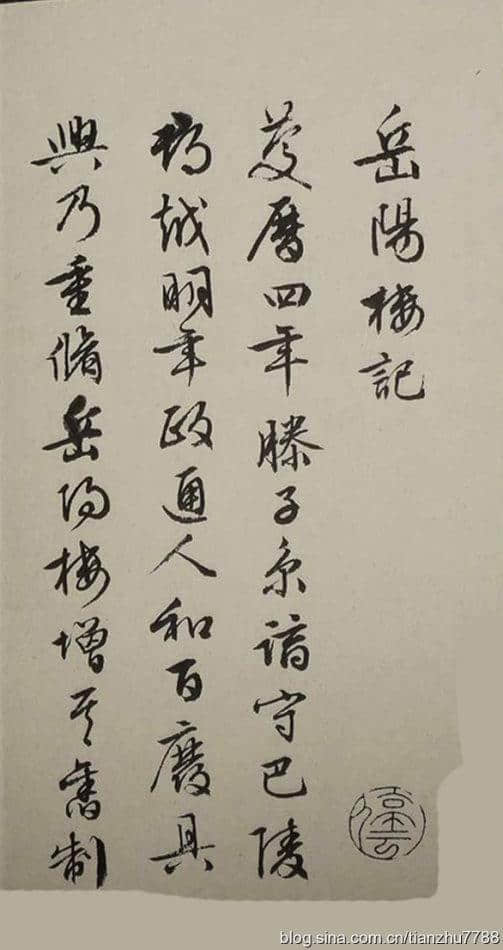 岳陽樓記
慶曆四年滕子京謫守巴陵
郡越明年政通人和百廢具
興乃重脩岳陽樓增其舊制
blog.sina.com.cn/tianzhu7788